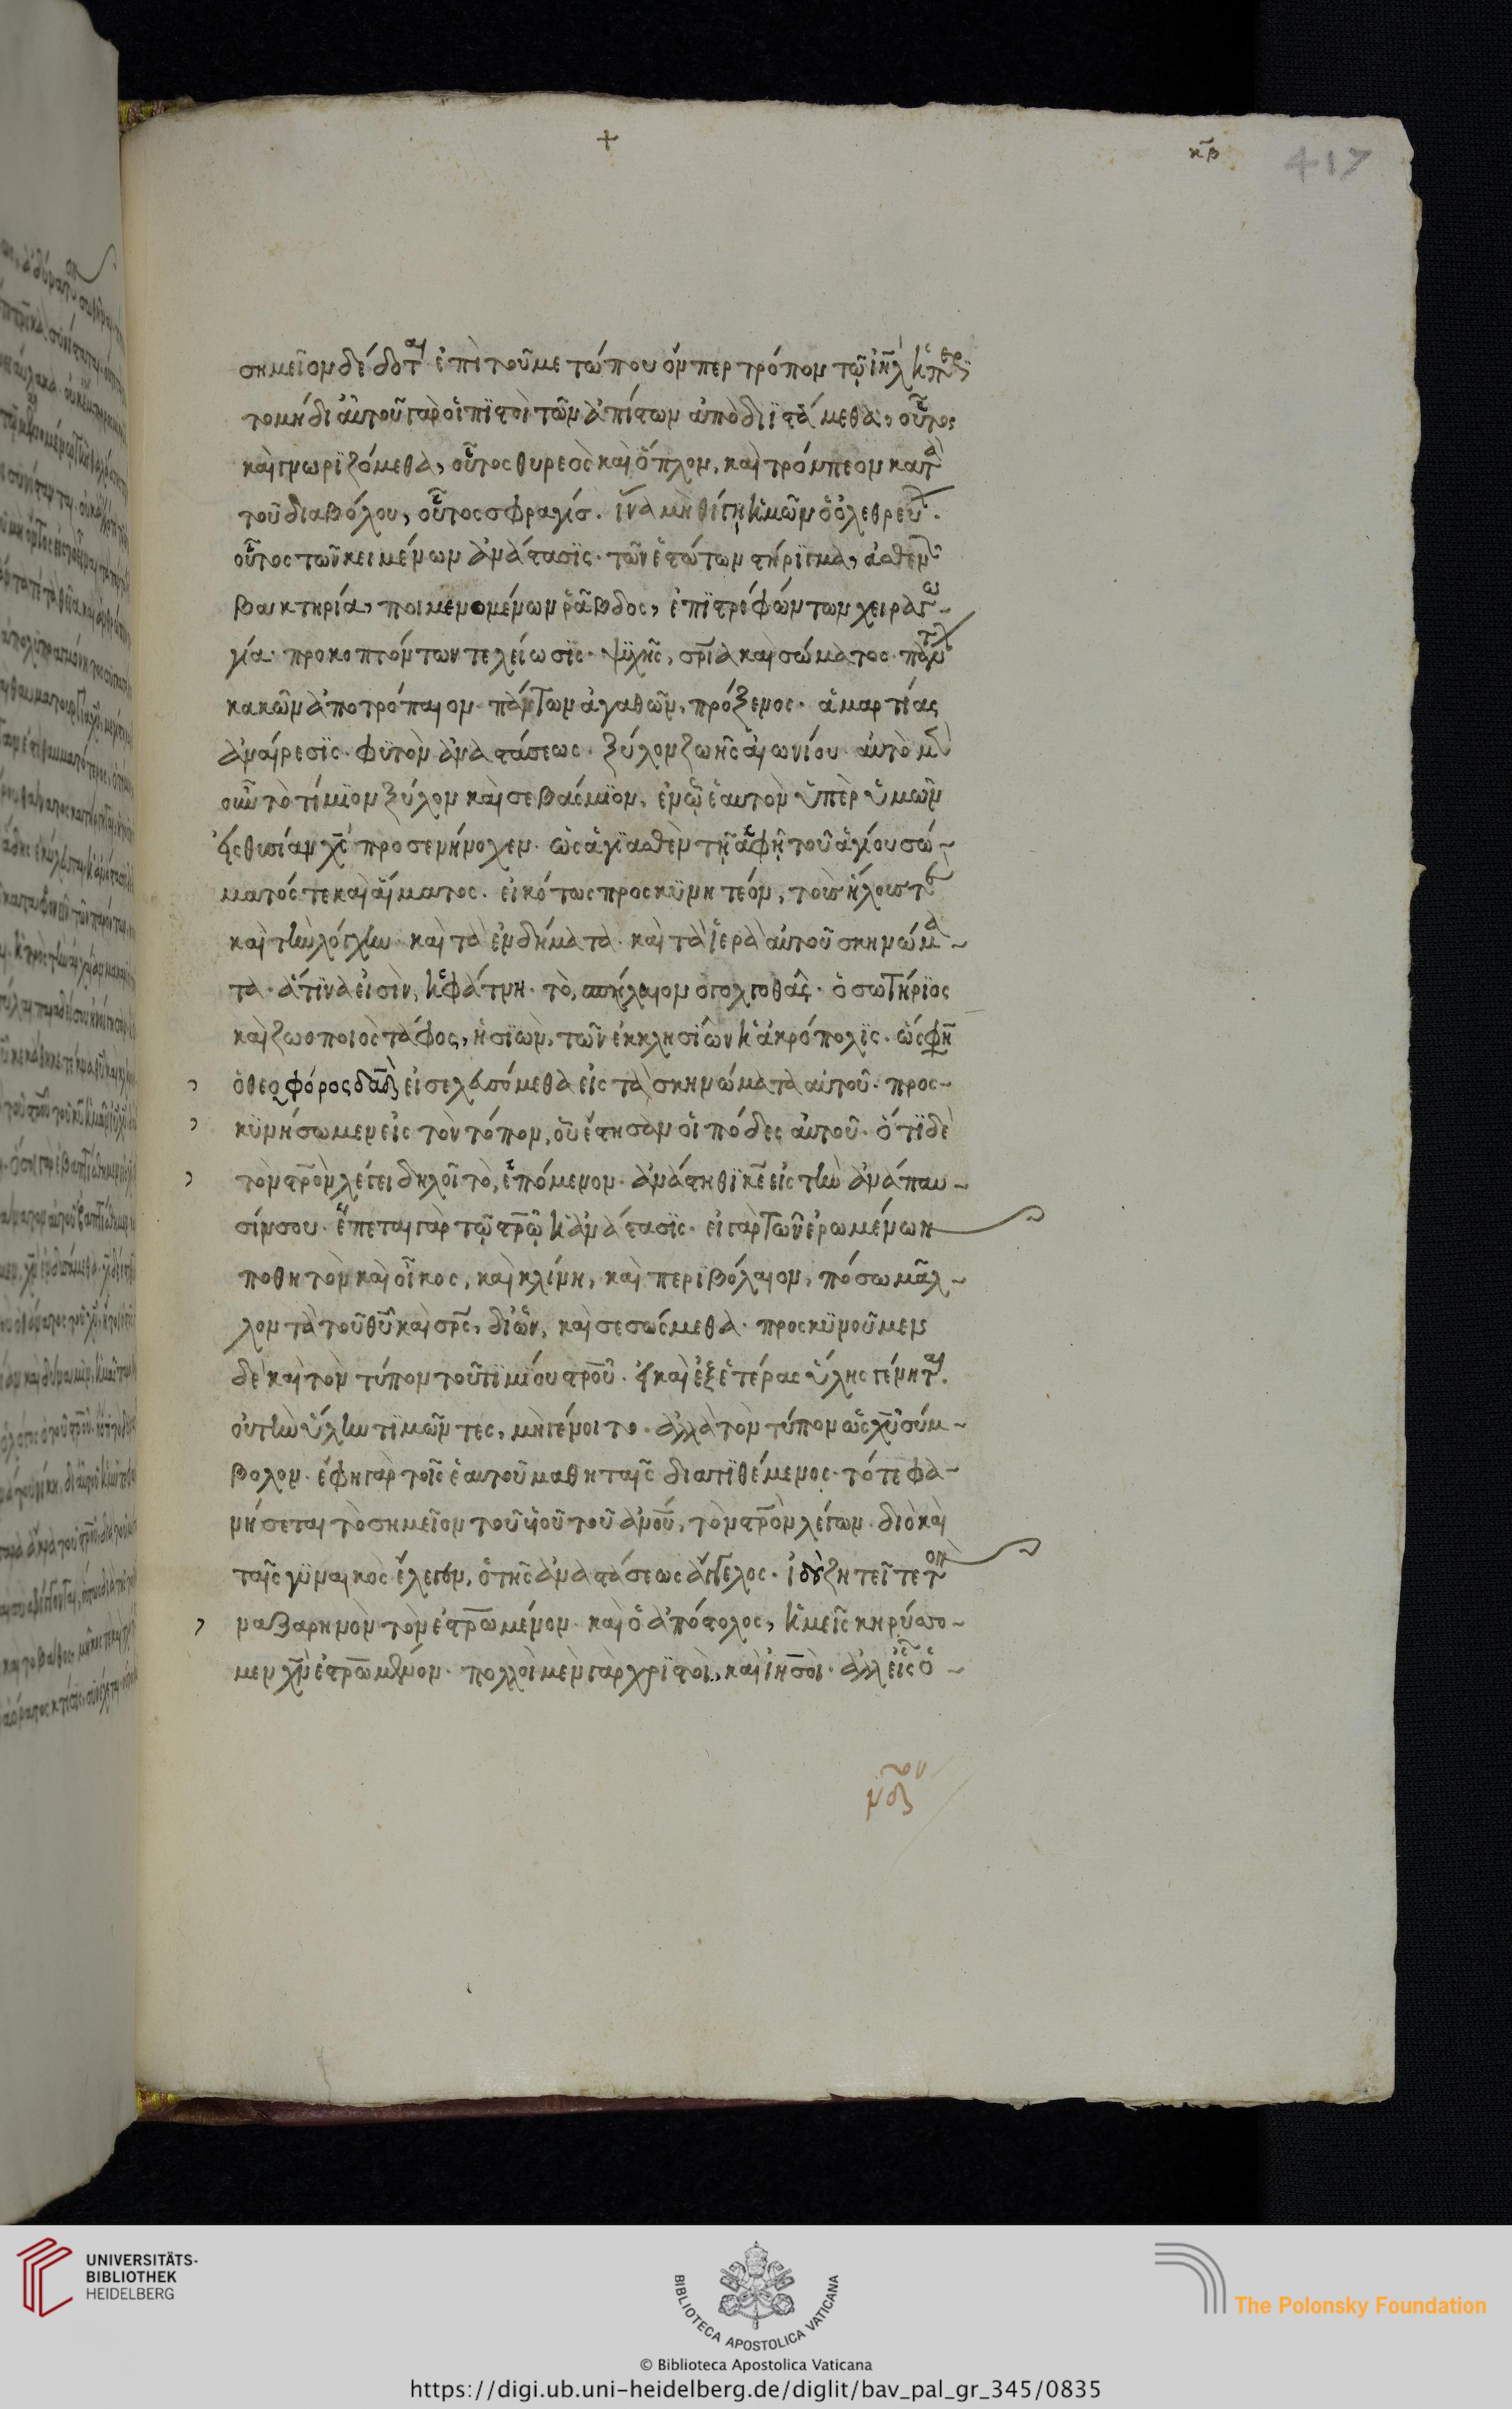 +
κβ
417
σημεῖον δέδοται ἐπὶ τοῦ μετώπου ὅνπερ τρόπον τῷ ἰηλ ἡ περι
τομὴ δι αὐτοῦ γὰρ οἱ πϊστοὶ τῶν ἀπίστων ἀποδιϊστάμεθα, οὗτος
καὶ γνωρϊζόμεθα, οὗτος θυρεὸς καὶ ὅπλον, καὶ τρόπαιον κατὰ
τοῦ διαβόλου, οὗτος σφραγίς. ἵνα μὴ θίγῃ ἡμῶν ὁ ὀλεθρεύ.
οὗτος τῶν κειμένων ἀνάστασϊς. τῶν ἑστώτων στήρϊγμα, ἀσθενῶν
βακτηρία, ποιμενομένων ῥάβδος, ἐπϊστρεφόντων χειραγω-
γία. προκοπτόντων τελείωσϊς. ψϋχῆς, σρία καὶ σώματος. πάντων
κακῶν ἀποτρόπαιον. πάντων ἀγαθῶν, πρόξενος. ἁμαρτίας
ἀναίρεσϊς. φϋτὸν ἀναστάσεως. ξύλον ζωῆς αἰωνίου. αὐτὸ μὲν
οὖν τὸ τίμϊον ξύλον καὶ σεβάσμϊον, ἐν ᾧ ἑαυτὸν ὑπὲρ ἡμῶν
εἰς θυσίαν χς προσενήνοχεν. ὡς ἁγϊασθὲν τῇ ἁφῇ τοῦ ἁγίου σώ-
ματός τε καὶ αἵματος. εἰκότως προσκϋνητέον, τοὺς ἥλους τε
καὶ τὴν λόγχην. καὶ τὰ ἐνδύματα. καὶ τὰ ἱερὰ αὐτοῦ σκηνώμα-
τα. ἅτϊνα εἰσὶν, ἡ φάτνη. τὸ, σπήλαιον ὁ γολγοθᾶς. ὁ σωτήρϊος
καὶ ζωοποιὸς τάφος, ἡ σϊὼν, τῶν ἐκκλησϊῶν ἡ ἀκρόπολϊς. ὥς φη
ὁ θεοφόρος δαδ εἰσελευσόμεθα εἰς τὰ σκηνώματα αὐτοῦ. προσ-
κϋνήσωμεν εἰς τὸν τόπον, οὗ ἔστησαν οἱ πόδες αὐτοῦ. ὅτϊ δὲ
τὸν στρον λέγει δηλοῖ τὸ, ἑπόμενον. ἀνάστηθϊ κε εἰς τὴν ἀνάπαυ-
σίν σου. ἕπεται γὰρ τῷ στρῷ ἡ ἀνάστασϊς. εἰ γὰρ τῶν ἐρωμένων
ποθητὸν καὶ οἶκος, καὶ κλίνη, καὶ περϊβόλαιον, πόσω μᾶλ-
λον τὰ τοῦ θυ καὶ σρς, δι ὧν, καὶ σεσώσμεθα. προσκϋνοῦμεν
δὲ καὶ τὸν τύπον τοῦ τϊμίου στρου. εἰ καὶ ἐξ ἑτέρας ὕλης γένηται.
οὐ τὴν ὕλην τϊμῶντες, μὴ γένοιτο. ἀλλὰ τὸν τύπον ὡς χυ σύμ-
βολον. ἔφη γὰρ τοῖς ἑαυτοῦ μαθηταῖς διατϊθέμενος. τότε φα-
νήσεται τὸ σημεῖον τοῦ υἱοῦ τοῦ ἀνου, τὸν στρον λέγων. διὸ καὶ
ταῖς γϋναικὸς ἔλεγεν, ὁ τῆς ἀναστάσεως ἄγγελος. ἰησοῦν ζητεῖτε τὸν
ναζαρηνὸν τὸν ἐστρωμένον. καὶ ὁ ἀπόστολος, ἡμεῖς κηρύσσο-
μεν χν ἐστρωμένον. πολλοὶ μὲν γὰρ χρϊστοὶ, καὶ ἰησοὶ. ἀλλ εἷς ὁ-
UNIVERSITÄTS-
BIBLIOTHEK
HEIDELBERG
BIBLIOTECA APOSTOLICA VATICANA
The Polonsky Foundation
© Biblioteca Apostolica Vaticana
https://digi.ub.uni-heidelberg.de/diglit/bav_pal_gr_345/0835